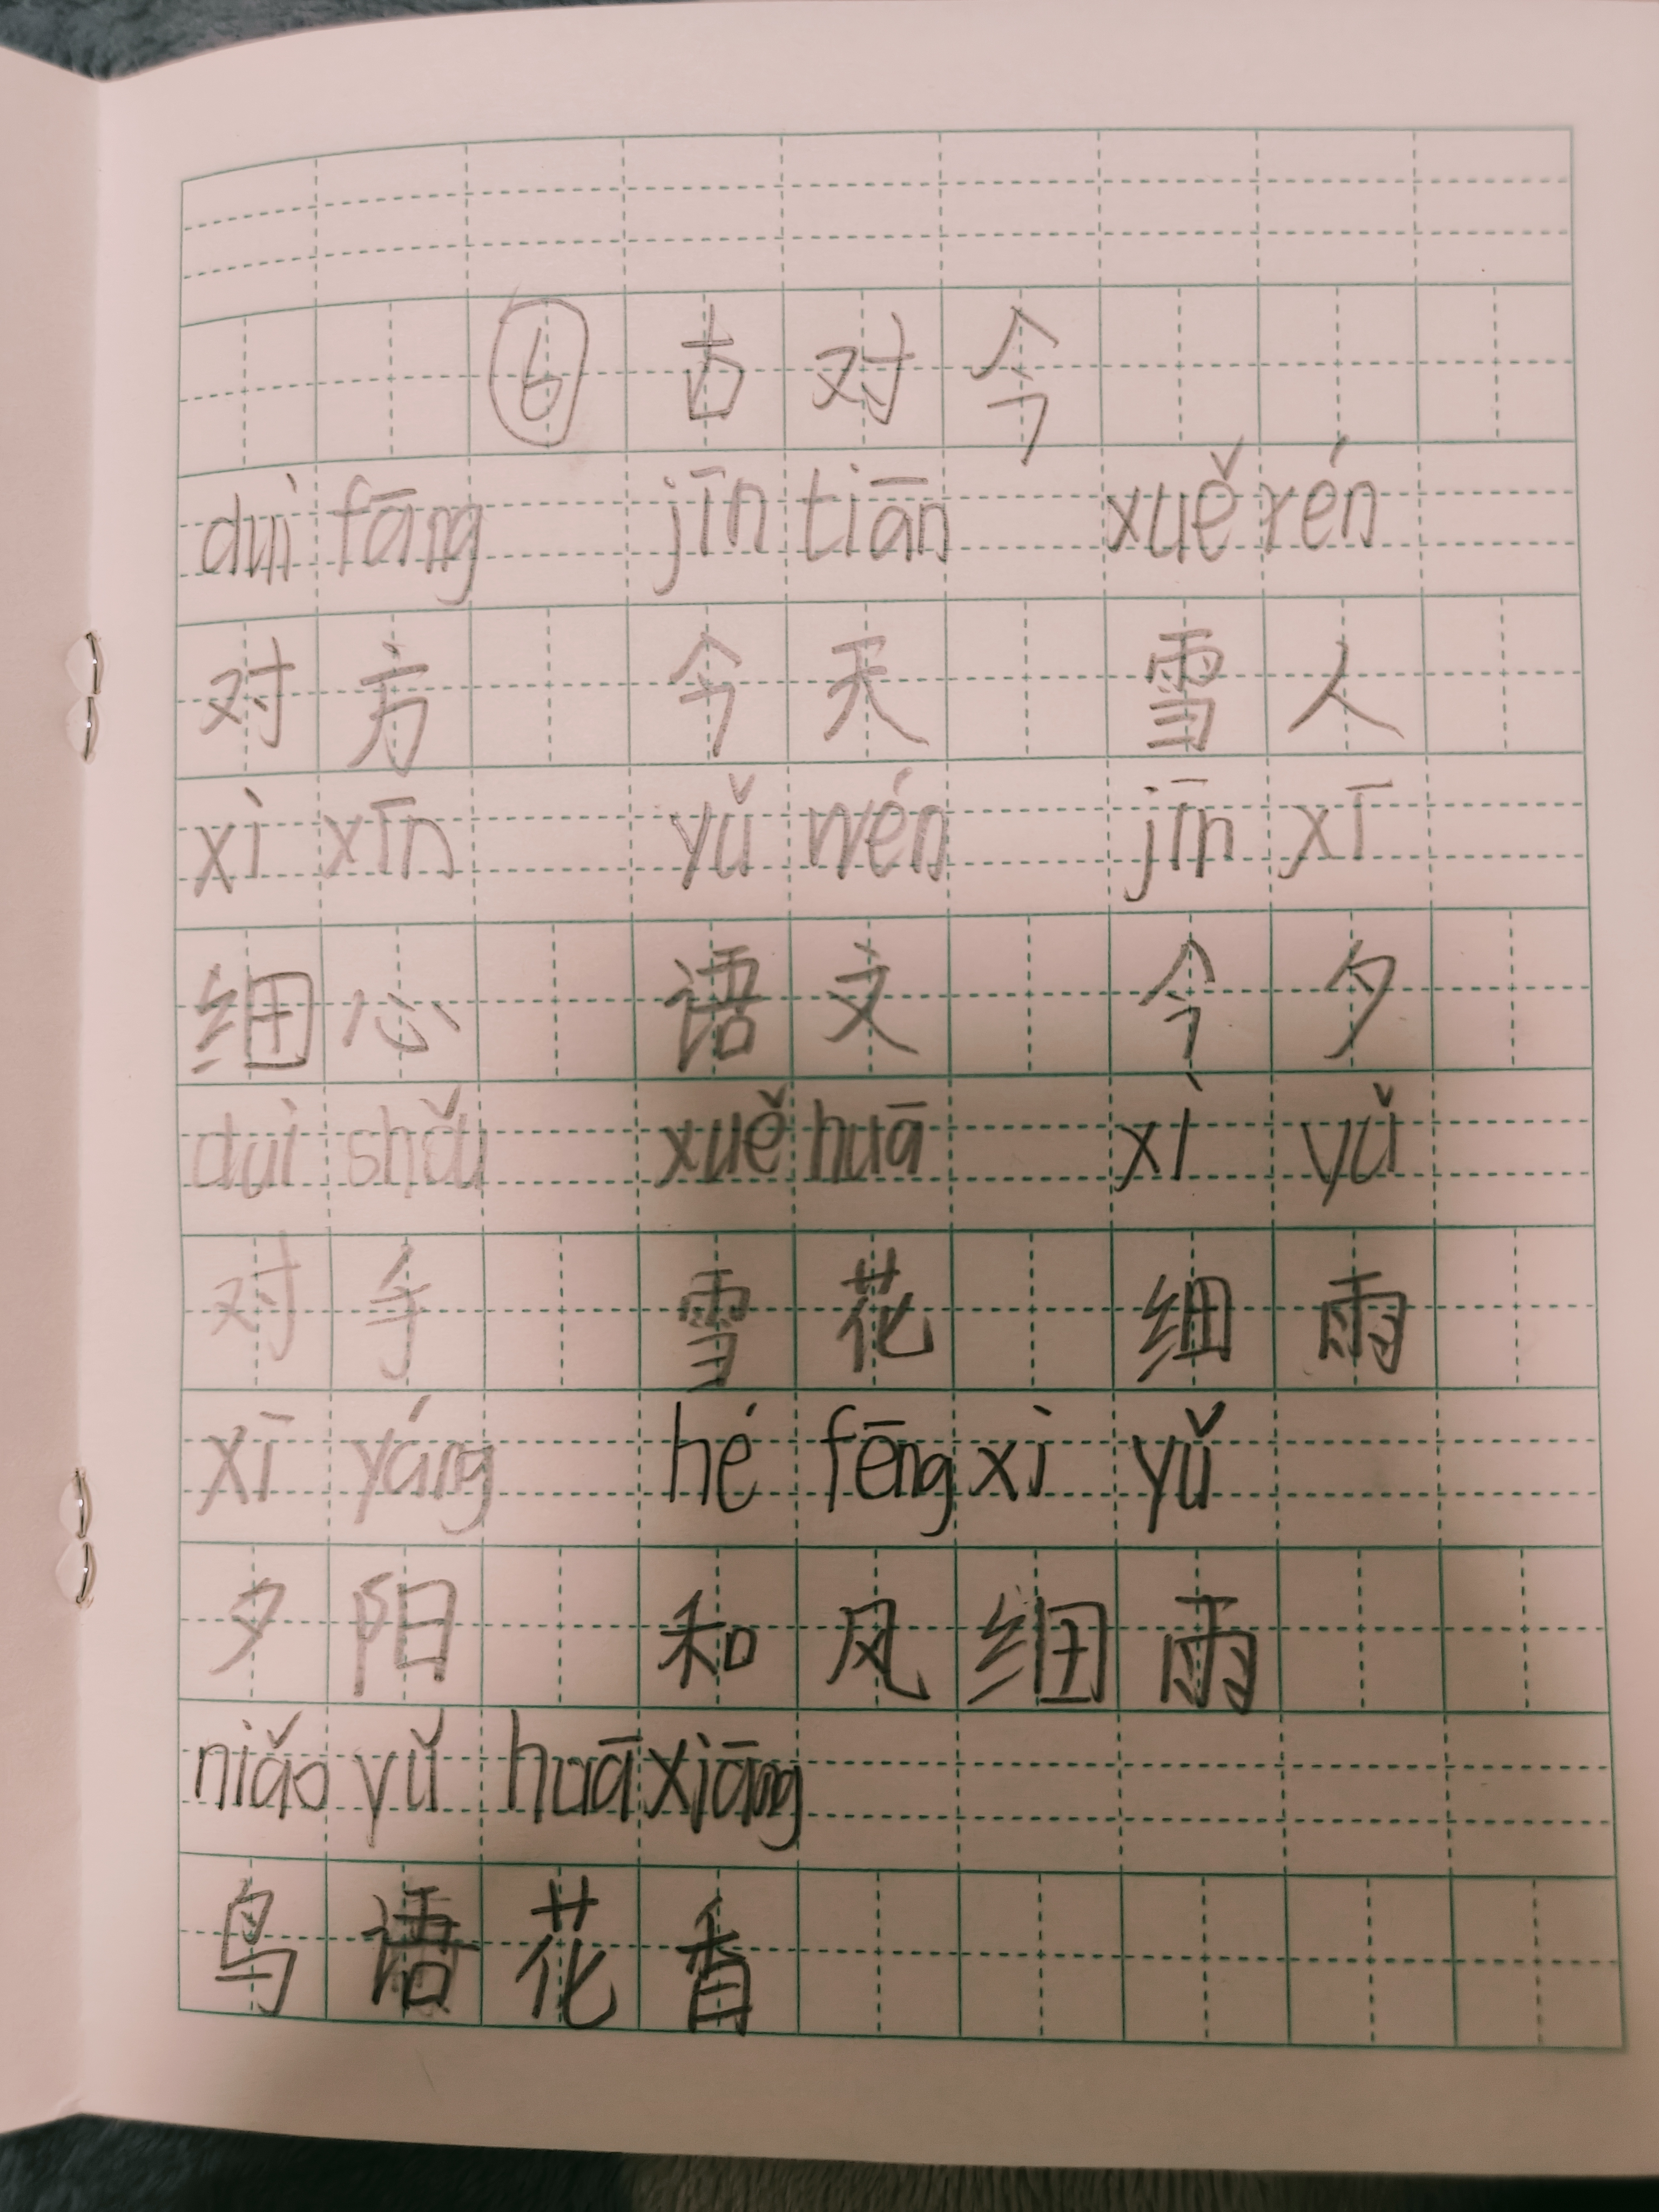 ⑥ 古对今
duì fāng jīn tiān xuě rén
对方 今天 雪人
xì xīn yǔ wén jīn xī
细心 语文 今夕
duì shǒu xuě huā xì yǔ
对手 雪花 细雨
xī yáng hé fēng xì yǔ
夕阳 和风细雨
niǎo yǔ huā xiāng
鸟语花香